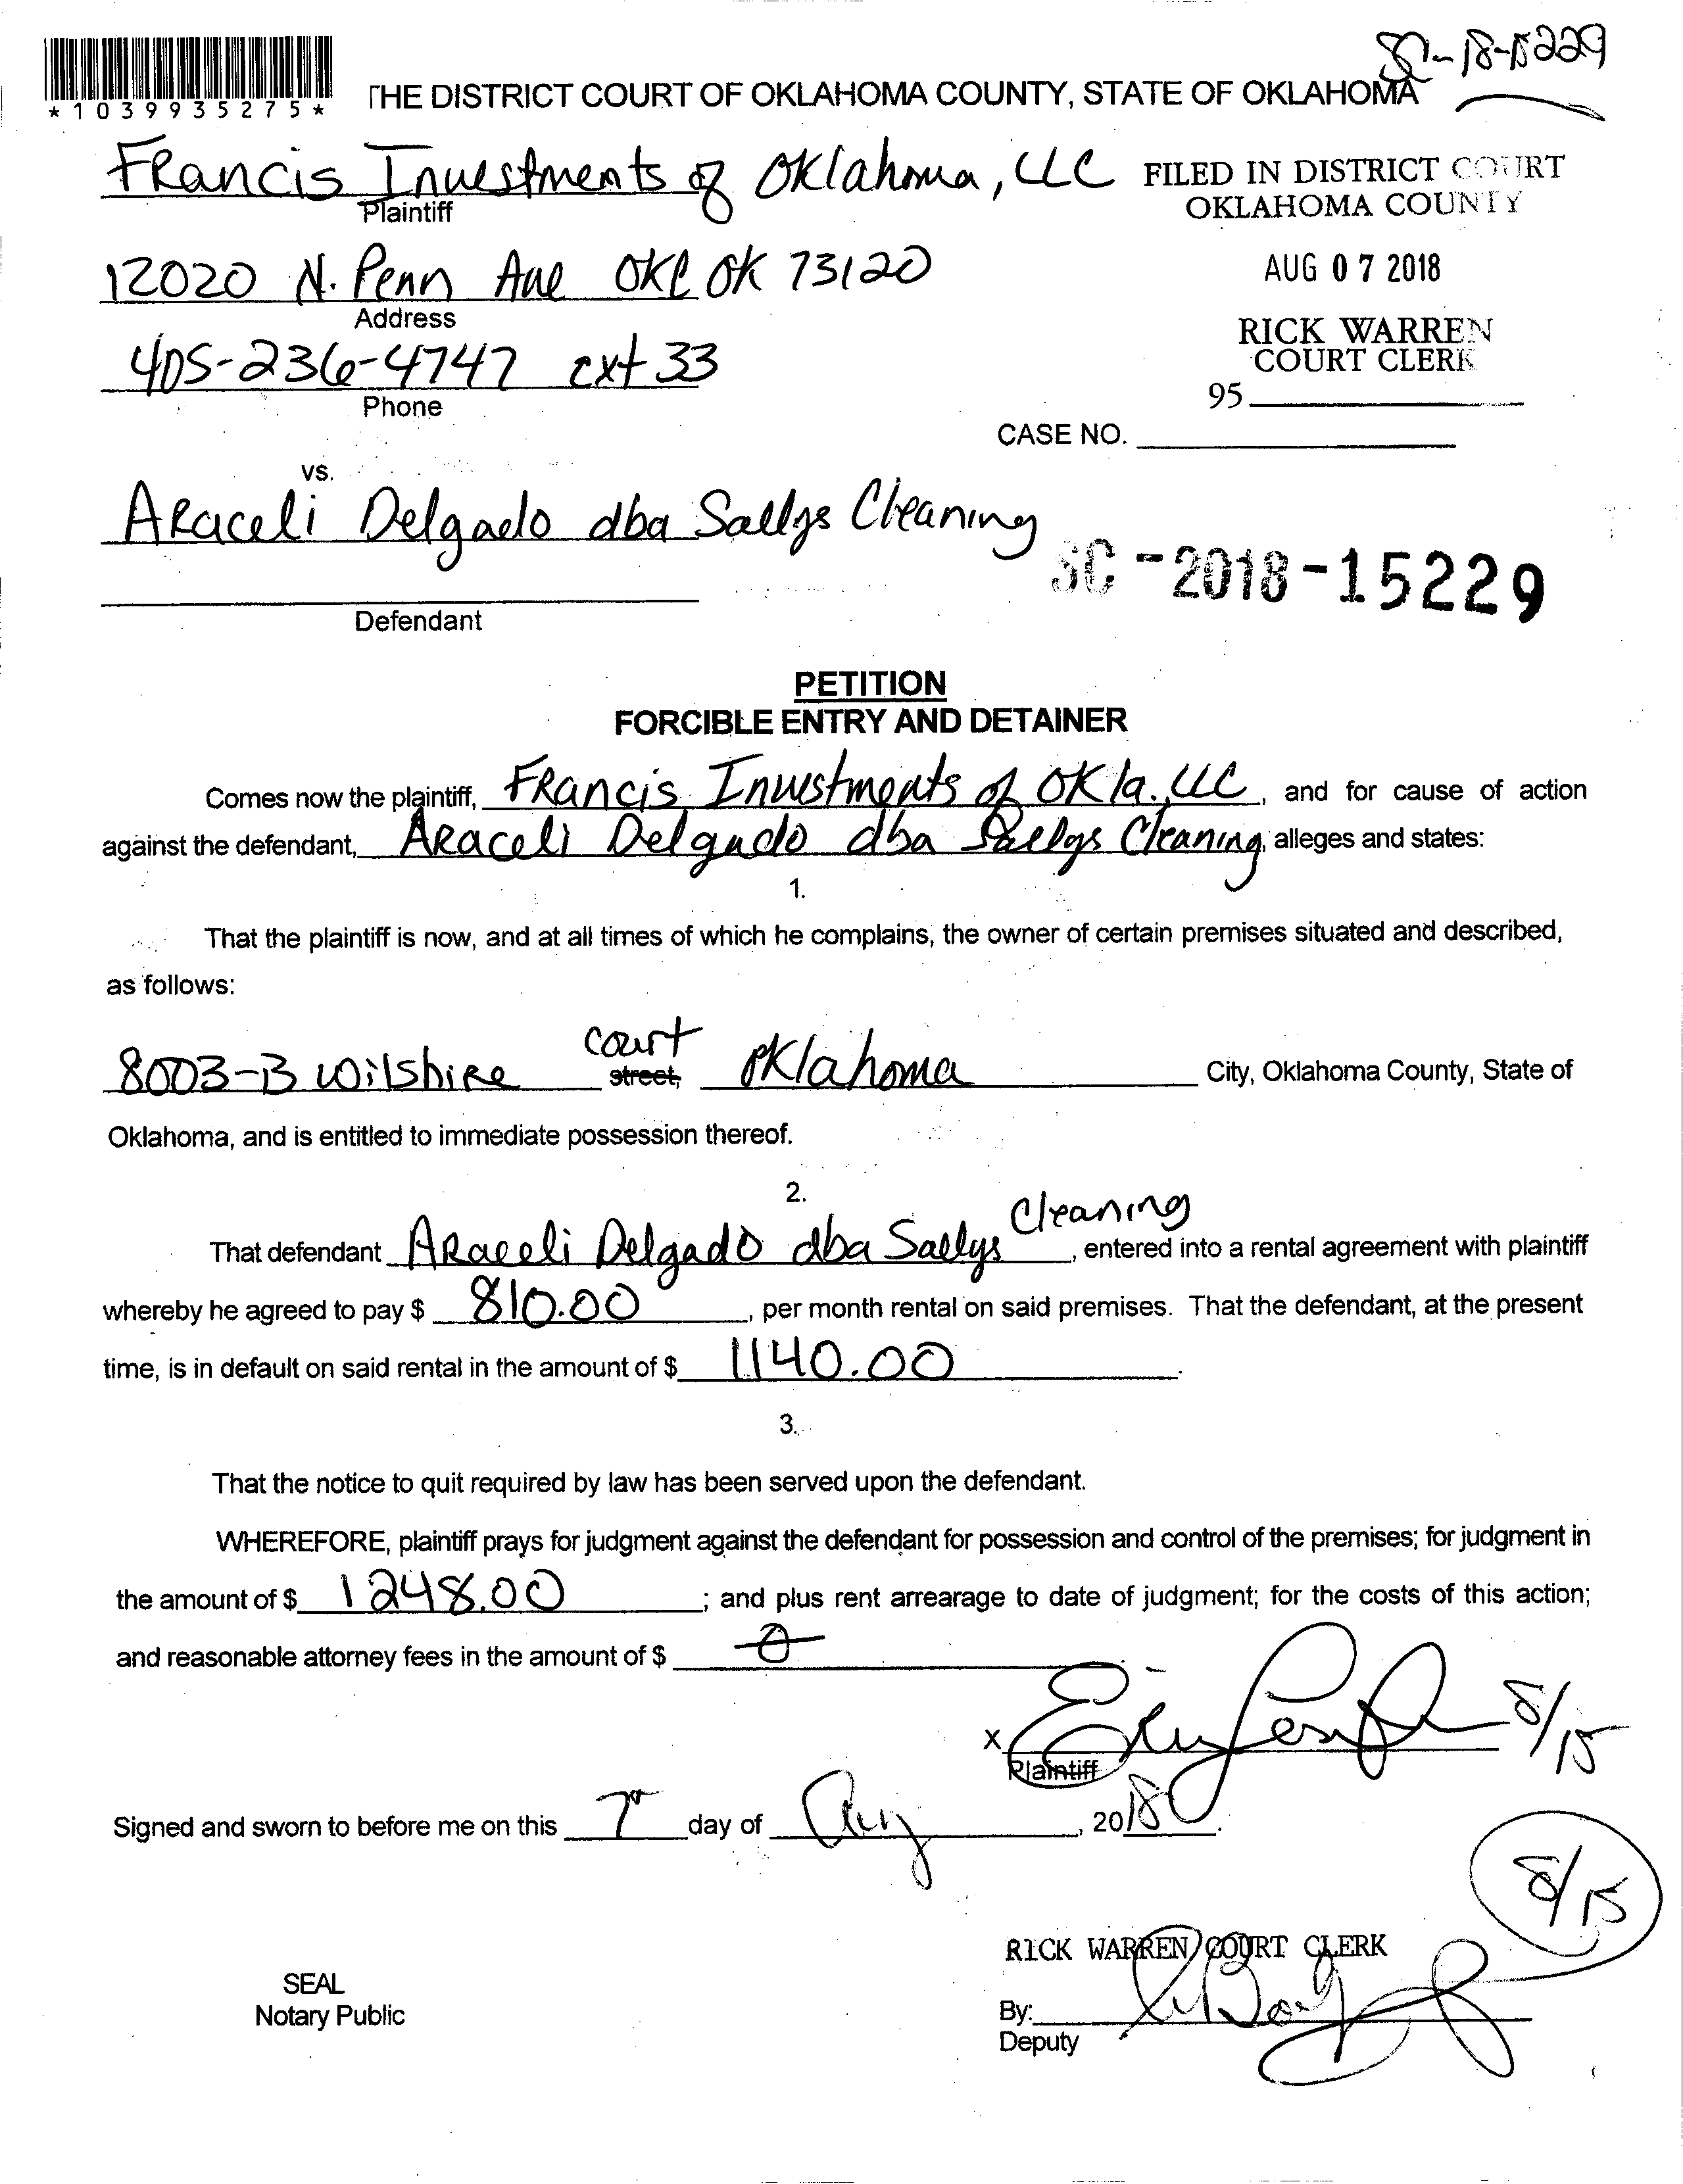 SC-18-15229
*1039935275*
THE DISTRICT COURT OF OKLAHOMA COUNTY, STATE OF OKLAHOMA
Francis Investments of Oklahoma, LLC
Plaintiff
FILED IN DISTRICT COURT
OKLAHOMA COUNTY
12020 N. Penn Ave OKC OK 73120
Address
AUG 07 2018
405-236-4747 ext 33
Phone
RICK WARREN
COURT CLERK
95
CASE NO.
vs.
Araceli Delgado dba Sallys Cleaning
Defendant
SC-2018-15229
PETITION
FORCIBLE ENTRY AND DETAINER
Comes now the plaintiff, Francis Investments of Okla. LLC, and for cause of action
against the defendant, Araceli Delgado dba Sallys Cleaning, alleges and states:
1.
That the plaintiff is now, and at all times of which he complains, the owner of certain premises situated and described,
as follows:
8003-B Wilshire court street, Oklahoma City, Oklahoma County, State of
Oklahoma, and is entitled to immediate possession thereof.
2.
That defendant Araceli Delgado dba Sallys Cleaning, entered into a rental agreement with plaintiff
whereby he agreed to pay $ 810.00, per month rental on said premises. That the defendant, at the present
time, is in default on said rental in the amount of $ 1140.00.
3.
That the notice to quit required by law has been served upon the defendant.
WHEREFORE, plaintiff prays for judgment against the defendant for possession and control of the premises; for judgment in
the amount of $ 1248.00; and plus rent arrearage to date of judgment; for the costs of this action;
and reasonable attorney fees in the amount of $ 0
X 8/15
Plaintiff
Signed and sworn to before me on this 7th day of Aug, 2018.
8/15
RICK WARREN COURT CLERK
SEAL
Notary Public
By:
Deputy